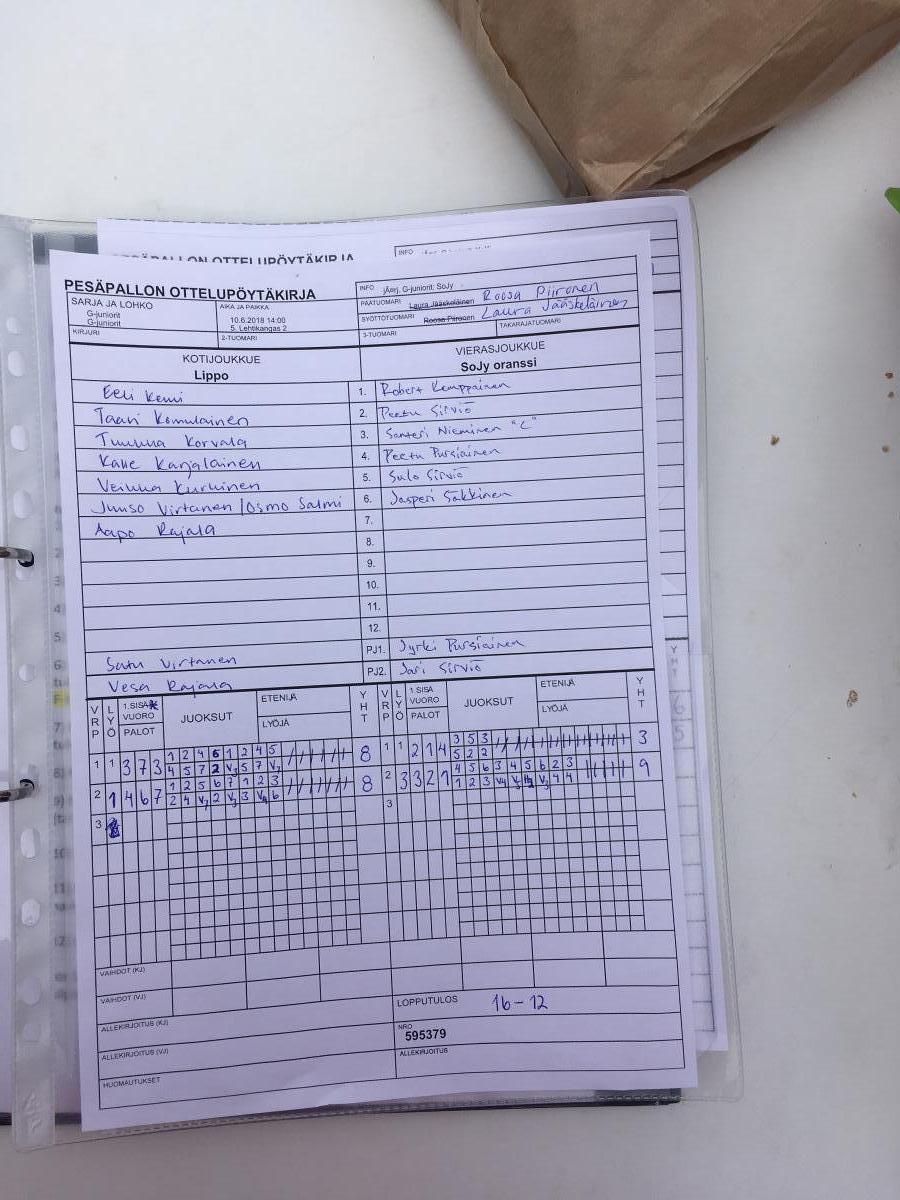 PESÄPALLON OTTELUPÖYTÄKIRJA
INFO
PESÄPALLON OTTELUPÖYTÄKIRJA
INFO jÄerj, G-juniorit: SoJy
SARJA JA LOHKO
G-juniorit
G-juniorit
AIKA JA PAIKKA
10.6.2018 14:00
5. Lehtikangas 2
PÄÄTUOMARI Laura Jääskeläinen Roosa Piironen
SYÖTTÖTUOMARI Roosa Piironen Laura Jääskeläinen
KIRJURI
2-TUOMARI
3-TUOMARI
TAKARAJATUOMARI
KOTIJOUKKUE
Lippo
VIERASJOUKKUE
SoJy oranssi
Eeli Kemi 1. Robert Kemppainen
Taavi Komulainen 2. Peetu Sirviö
Tuukka Korvala 3. Santeri Nieminen "C"
Kalle Karjalainen 4. Peetu Pursiainen
Veikka Kurkinen 5. Sulo Sirviö
Juuso Virtanen / Osmo Salmi 6. Jasperi Säkkinen
Aapo Rajala 7.
8.
9.
10.
11.
12.
Satu Virtanen PJ1. Jyrki Pursiainen
Vesa Rajala PJ2. Jari Sirviö
VRP LYÖ 1.SISÄ VUORO PALOT JUOKSUT ETENIJÄ LYÖJÄ YHT VRP LYÖ 1.SISÄ VUORO PALOT JUOKSUT ETENIJÄ LYÖJÄ YHT
1 1 3 7 3 1 2 4 6 1 2 4 5 8 1 1 2 1 4 3 5 3 3
4 5 7 2 V 5 7 V 5 2 2
2 1 4 6 7 1 2 5 6 7 1 2 3 8 2 3 3 2 1 4 5 6 3 4 5 6 2 3 9
2 4 V 2 V 3 V 6 1 2 3 V4 4 4
3 3
VAIHDOT (KJ)
VAIHDOT (VJ)
ALLEKIRJOITUS (KJ)
LOPPUTULOS 16-12
ALLEKIRJOITUS (VJ)
NRO
595379
HUOMAUTUKSET
ALLEKIRJOITUS